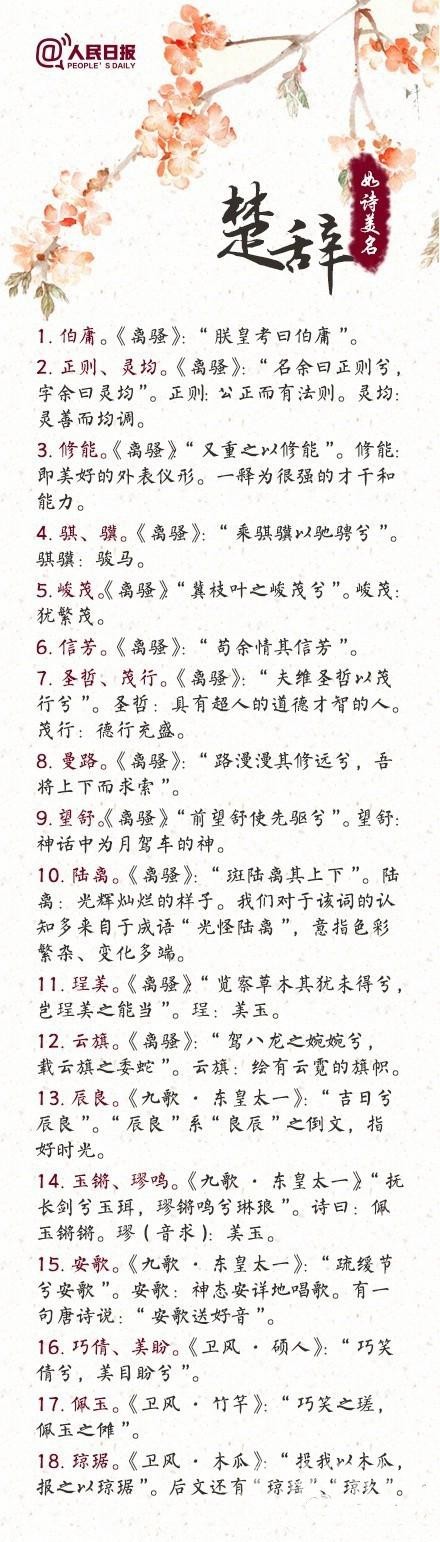 @人民日报
PEOPLE'S DAILY
楚辞
如诗美名
1. 伯庸。《离骚》：“朕皇考曰伯庸”。
2. 正则、灵均。《离骚》：“名余曰正则兮，
字余曰灵均”。正则：公正而有法则。灵均：
灵善而均调。
3. 修能。《离骚》“又重之以修能”。修能：
即美好的外表仪形。一释为很强的才干和
能力。
4. 骐、骥。《离骚》：“乘骐骥以驰骋兮”。
骐骥：骏马。
5. 峻茂。《离骚》“冀枝叶之峻茂兮”。峻茂：
犹繁茂。
6. 信芳。《离骚》：“苟余情其信芳”。
7. 圣哲、茂行。《离骚》：“夫维圣哲以茂
行兮”。圣哲：具有超人的道德才智的人。
茂行：德行充盛。
8. 曼路。《离骚》：“路漫漫其修远兮，吾
将上下而求索”。
9. 望舒。《离骚》“前望舒使先驱兮”。望舒：
神话中为月驾车的神。
10. 陆离。《离骚》：“斑陆离其上下”。陆
离：光辉灿烂的样子。我们对于该词的认
知多来自于成语“光怪陆离”，意指色彩
繁杂、变化多端。
11. 珵美。《离骚》“览察草木其犹未得兮，
岂珵美之能当”。珵：美玉。
12. 云旗。《离骚》：“驾八龙之婉婉兮，
载云旗之委蛇”。云旗：绘有云霓的旗帜。
13. 辰良。《九歌·东皇太一》：“吉日兮
辰良”。“辰良”系“良辰”之倒文，指
好时光。
14. 玉锵、璆鸣。《九歌·东皇太一》“抚
长剑兮玉珥，璆锵鸣兮琳琅”。诗曰：佩
玉锵锵。璆（音求）：美玉。
15. 安歌。《九歌·东皇太一》：“疏缓节
兮安歌”。安歌：神态安详地唱歌。有一
句唐诗说：“安歌送好音”。
16. 巧倩、美盼。《卫风·硕人》：“巧笑
倩兮，美目盼兮”。
17. 佩玉。《卫风·竹竿》：“巧笑之瑳，
佩玉之傩”。
18. 琼琚。《卫风·木瓜》：“投我以木瓜，
报之以琼琚”。后文还有“琼瑶”、“琼玖”。